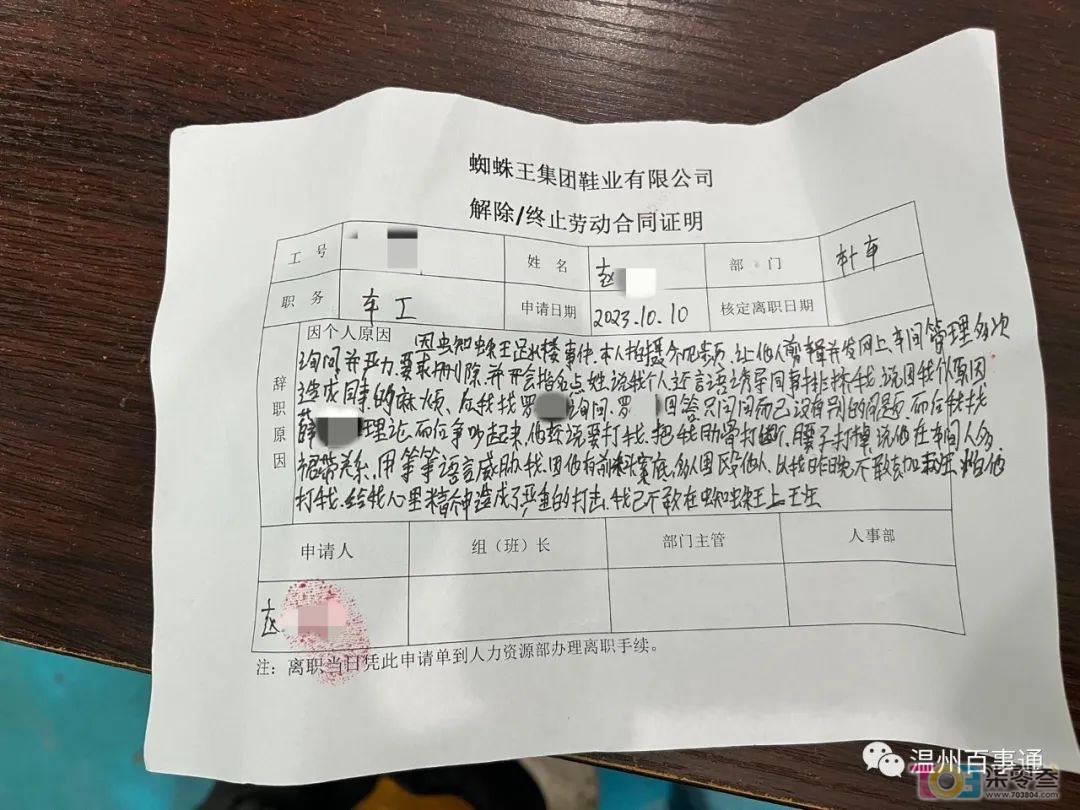 蜘蛛王集团鞋业有限公司
解除/终止劳动合同证明
工 号
姓 名 赵
部 门 扑车
职 务 车工
申请日期 2023.10.10
核定离职日期
辞职原因
因个人原因 因蜘蛛王跳楼事件,本人拍摄介视频,让他人剪辑并发网上,车间管理多次
询问并严力要求删除,并开会指名点姓说我个人,还言语诱导同事排挤我,说因我个人原因
造成同事的麻烦,后我找罗 询问,罗 回答只问问而己没有别的问题,而后我找
薛 理论,而后争吵起来,他还说要打我,把我肋骨打断,腰子打掉,说他在车间人多
裙带关系,用等等语言威胁我,因他有前科案底,多人围殴他人,
打我,给我心里精神造成了严重的打击,我己不敢在蜘蛛王上王生
申请人
组(班)长
部门主管
人事部
赵
注:离职当日凭此申请单到人力资源部办理离职手续。
温州百事通
703
柒零叁
www.703804.com